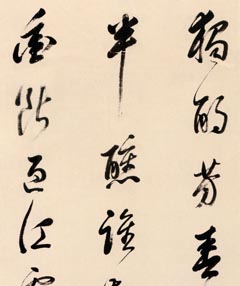 獨酌芳春
半醺誰
衝斷過江雲